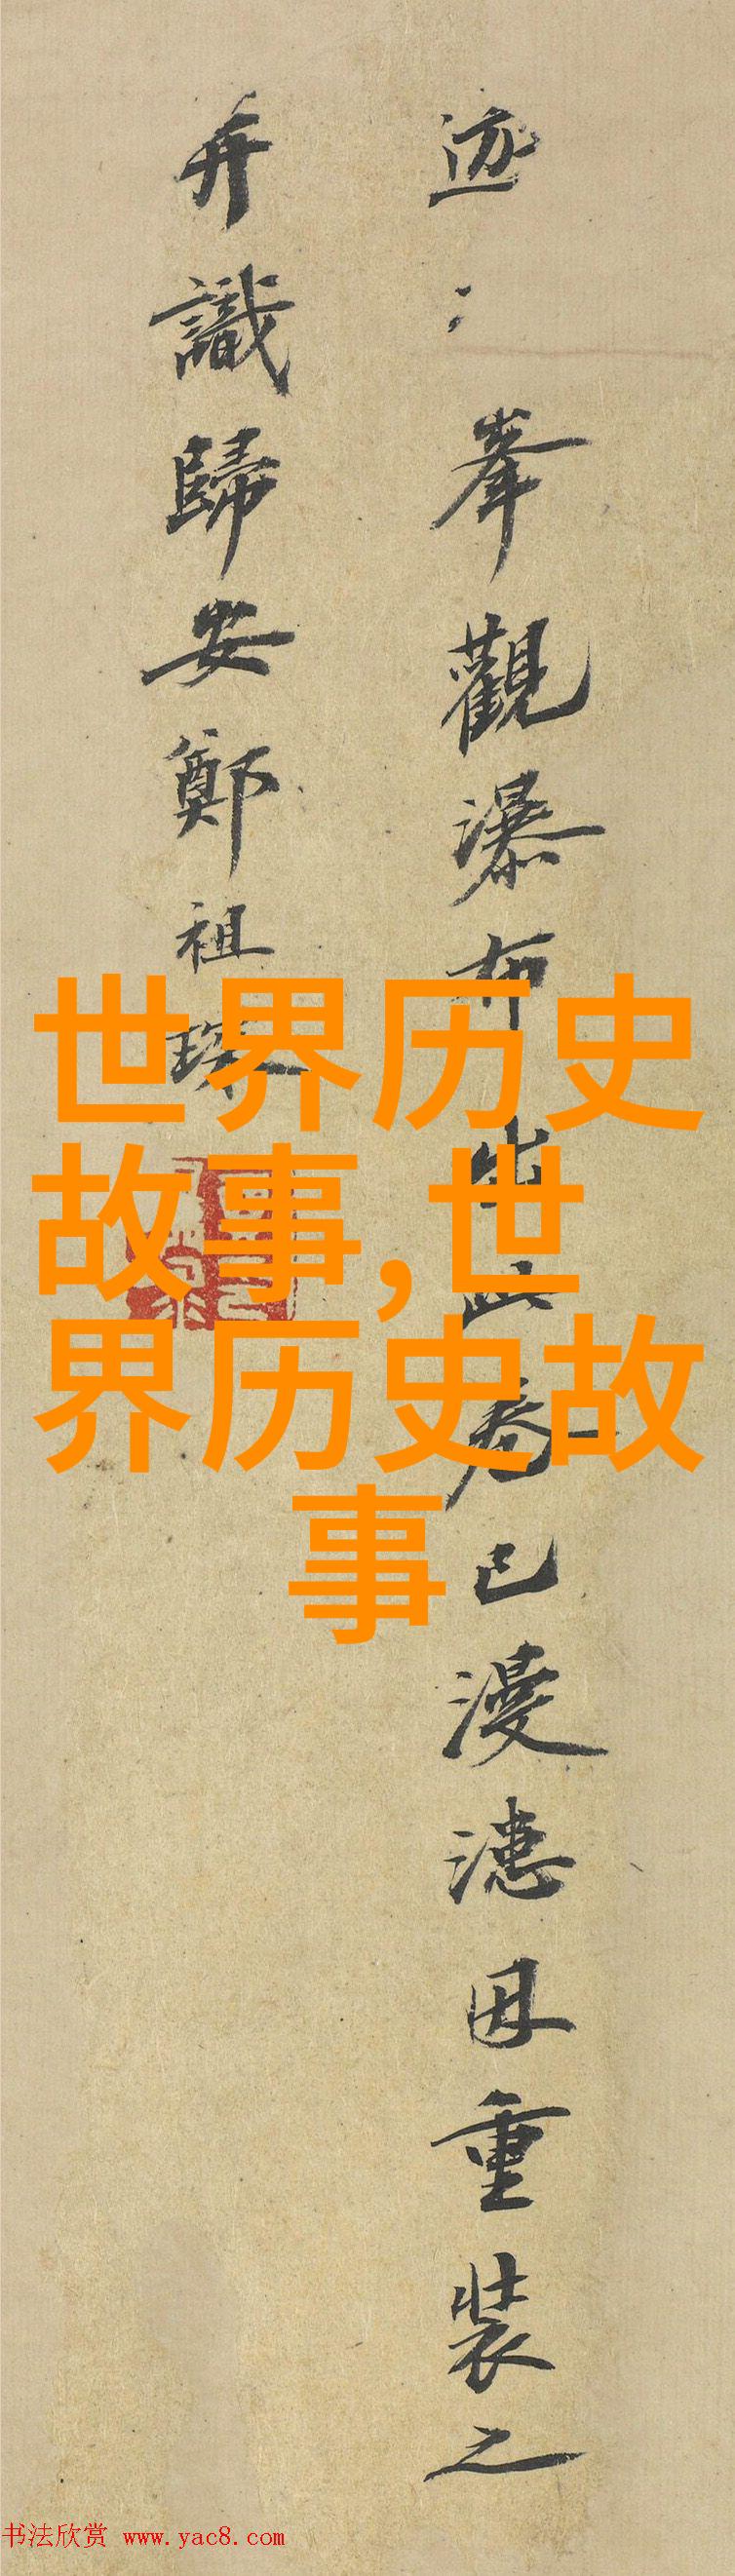 迹〻峯觀瀑布出此卷已漫漶因重裝之
并識歸安鄭祖琛
世界历史
故事,世
界历史故
事
书法欣赏 www.yac8.com